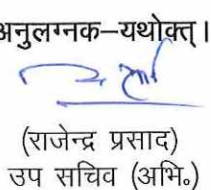 अनुलग्नक–यथोक्त्।
(राजेन्द्र प्रसाद)
उप सचिव (अभि॰)